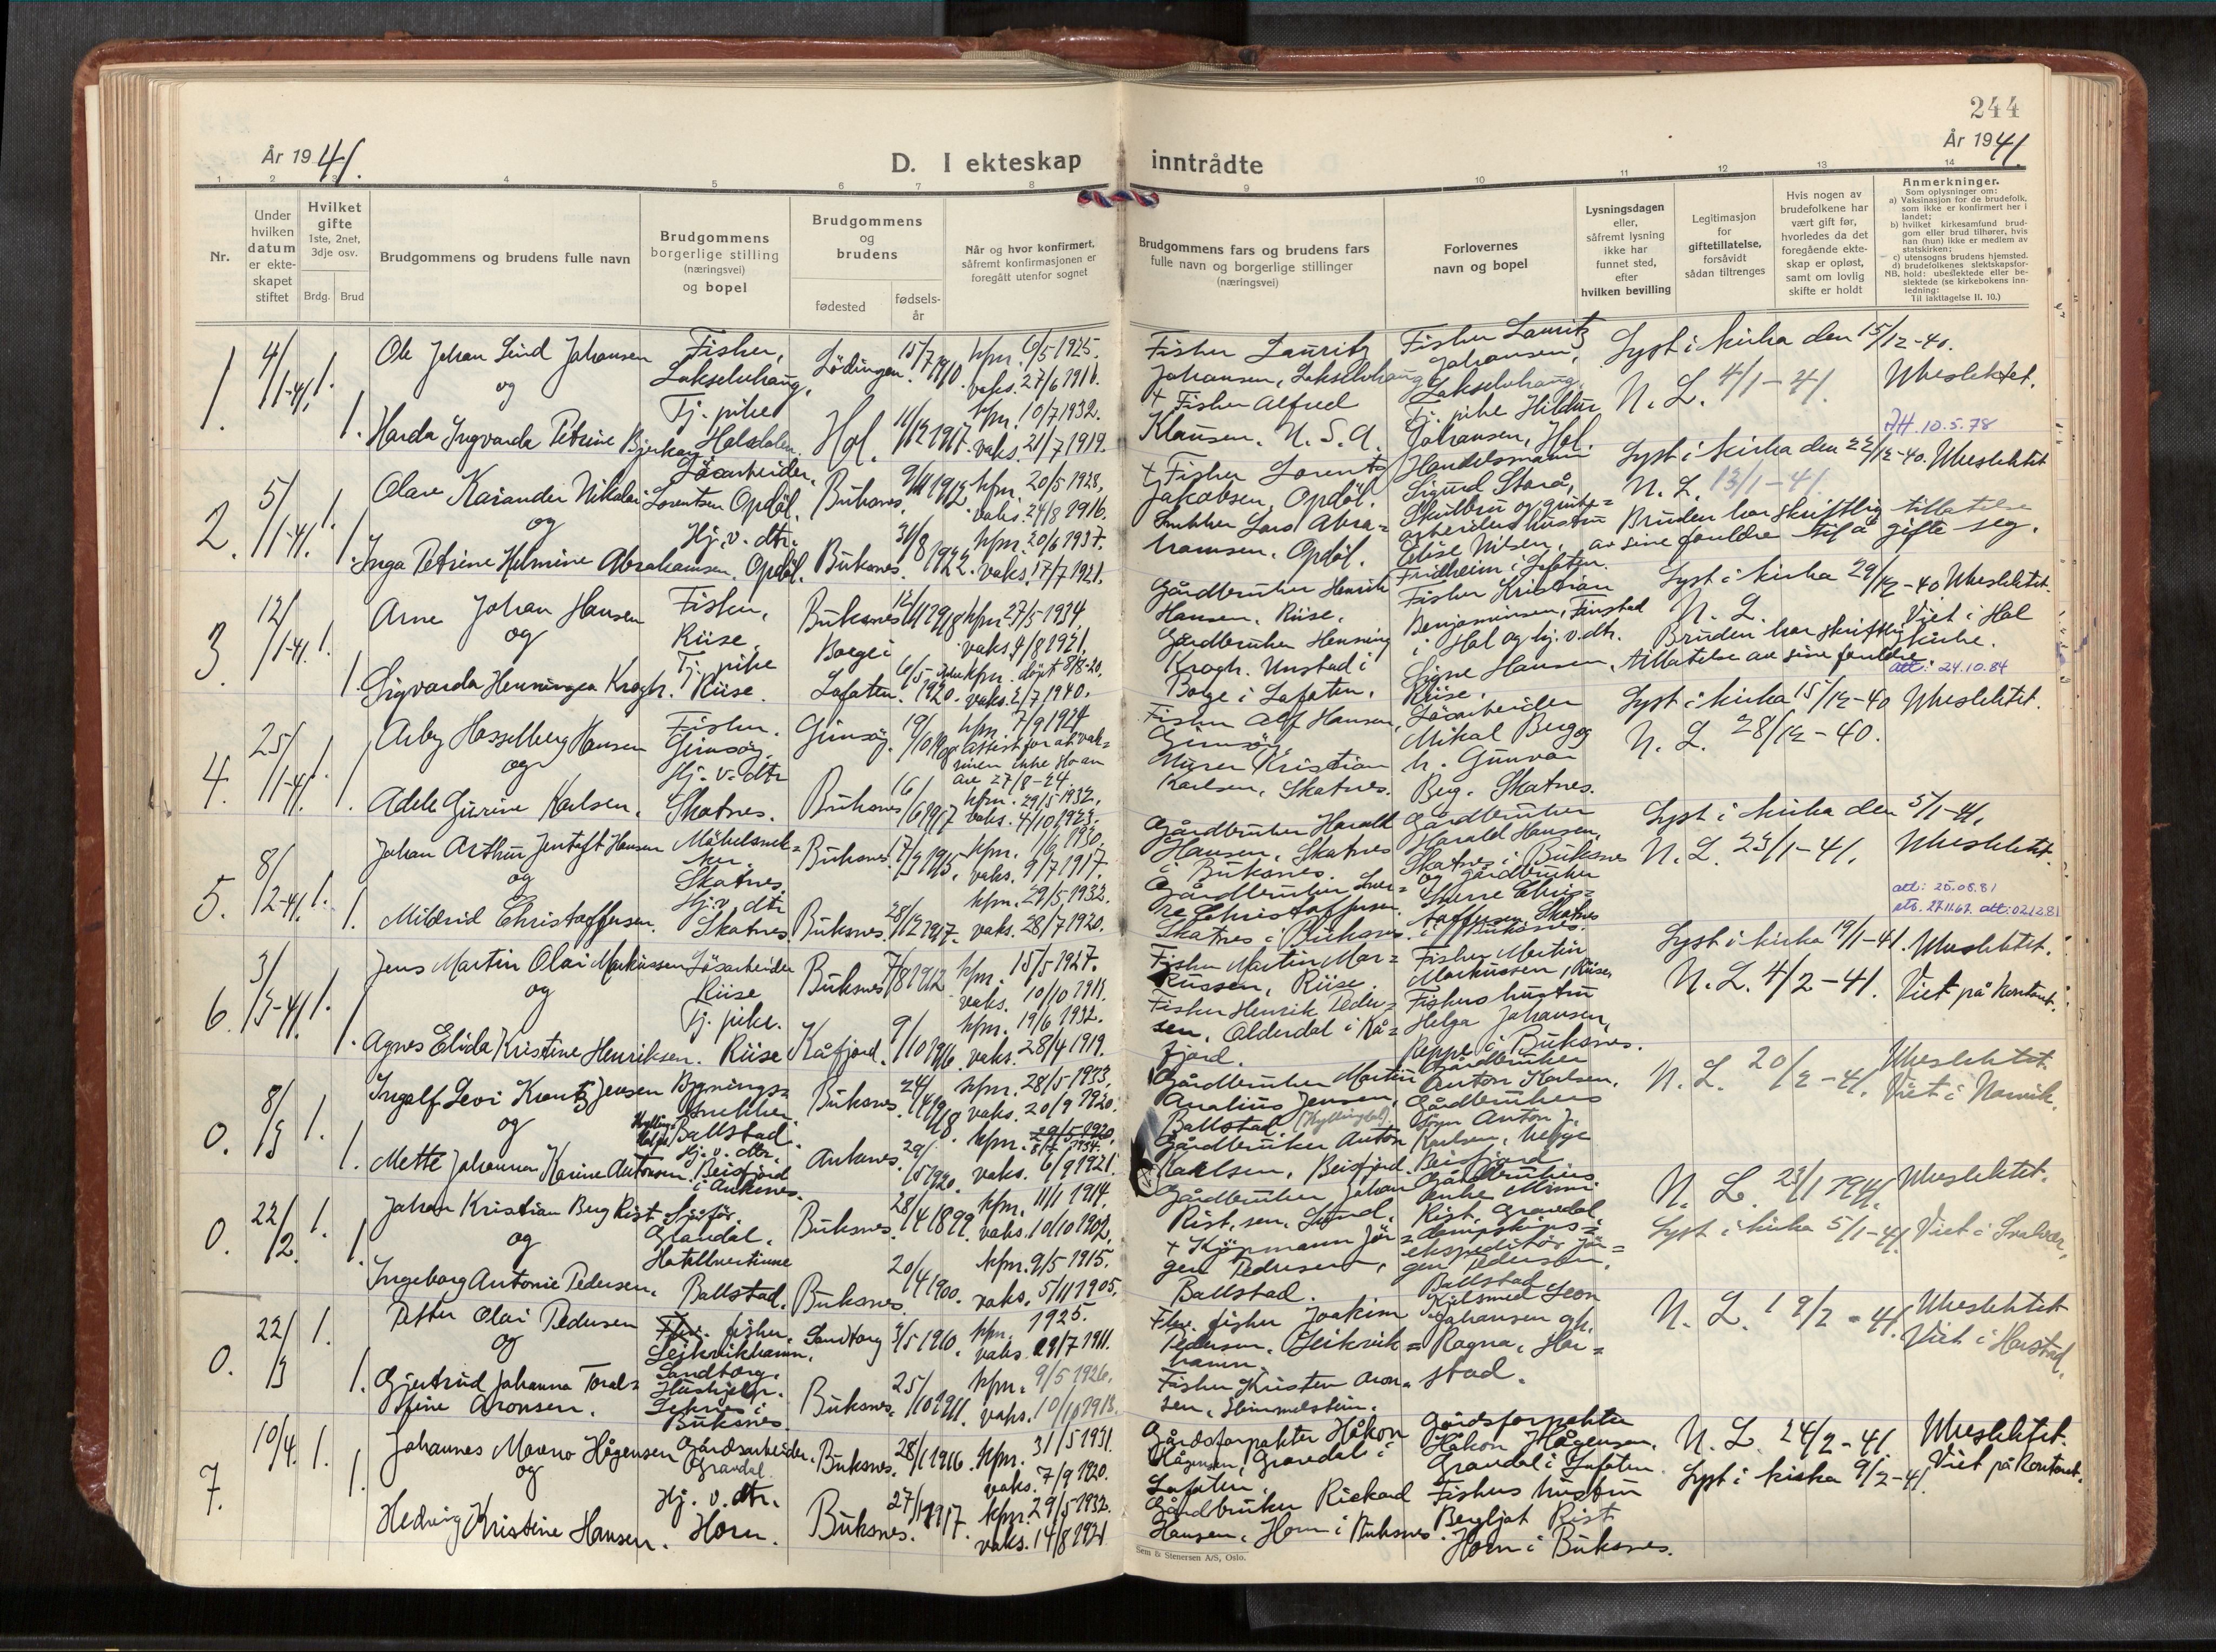 244
År 1941.
År 1941.
D. I ekteskap inntrådte
1 2 3 4 5 6 7 8 9 10 11 12 13 14
Nr.
Under
hvilken
datum
er ekte-
skapet
stiftet
Hvilket
gifte
1ste, 2net,
3dje osv.
Brdg. Brud
Brudgommens og brudens fulle navn
Brudgommens
borgerlige stilling
(næringsvei)
og bopel
Brudgommens
og
brudens
fødested
fødsels-
år
Når og hvor konfirmert,
såfremt konfirmasjonen er
foregått utenfor sognet
Brudgommens fars og brudens fars
fulle navn og borgerlige stillinger
(næringsvei)
Forlovernes
navn og bopel
Lysningsdagen
eller,
såfremt lysning
ikke har
funnet sted,
efter
hvilken bevilling
Legitimasjon
for
giftetillatelse,
forsåvidt
sådan tiltrenges
Hvis nogen av
brudefolkene har
vært gift før,
hvorledes da det
foregående ekte-
skap er opløst,
samt om lovlig
skifte er holdt
Anmerkninger.
Som oplysninger om:
a) Vaksinasjon for de brudefolk,
som ikke er konfirmert her i
landet;
b) hvilket kirkesamfund brud-
gom eller brud tilhører, hvis
han (hun) ikke er medlem av
statskirken;
c) utensogns brudens hjemsted.
d) brudefolkenes slektskapsfor-
NB. hold: ubeslektede eller be-
slektede (se kirkebokens inn-
ledning:
Til iakttagelse II. 10.)
1. 4/1-41. 1. 1.
Ole Johan Lind Johansen
og
Harda Ingvarda Petrine Bjerkan
Fisker,
Lakselvhaug,
Tj. pike
Lødingen. 15/7 1910. kfm. 6/5 1925.
vaks. 27/6 1911.
Hol. 11/12 1917. kfm. 10/7 1932.
vaks. 21/7 1919.
Fisker Lauritz
Johansen, Lakselvhaug
+ Fisker Alfred
Klausen. U. S. A.
Fisker Lauritz
Johansen,
Lakselvhaug,
Tj. pike Hildur
Johansen, Hol.
Lyst i kirka den 15/12-40.
N. L. 4/1-41.
Ubeslektet.
JH. 10.5.78
2. 5/1-41. 1. 1.
Olav Kasander Nikolai Lorentsen
og
Inga Petrine Helmine Abrahamsen.
Løsarbeider,
Opdøl,
Hj. v. dtr.
Opdøl.
Buksnes. 9/11 1912. kfm. 20/5 1928.
vaks. 24/8 1916.
Buksnes. 31/8 1922. kfm. 20/6 1937.
vaks. 17/7 1921.
+ Fisker Lorents
Jakobsen, Opdøl.
Snekker Lars Abra=
hamsen. Opdøl.
Handelsmann
Sigurd Storå,
Skulbru og grube=
arbeiders hustru
Elise Nilsen,
Fridheim i Lofoten.
Lyst i kirka den 22/12-40. Ubeslektet
N. L. 13/1-41.
Bruden har skriftlig tillatelse
av sine foreldre til å gifte seg.
3. 12/1-41. 1. 1.
Arne Johan Hansen
og
Sigvarda Henningea Krogh.
Fisker,
Riise,
Tj. pike
Riise.
Buksnes 12/11 1918 kfm 27/5 1934
vaks. 4/8 1921.
Borge i
Lofoten. 6/5 1920. kfm. døpt 8/8-20.
vaks. 2/7 1940.
Gårdbruker Henrik
Hansen. Riise.
Gårdbruker Henning
Krogh. Unstad i
Borge i Lofoten.
Fisker Kristian
Benjaminsen, Finstad
i Hol og hj. v. dtr.
Signe Hansen,
Riise.
Lyst i kirka 29/12-40 Ubeslektet.
N. L.
Bruden har skriftlig
tillatelse av sine foreldre.
Viet i Hol
kirke.
att: 24.10.84
4. 25/1-41. 1. 1.
Arby Hasselberg Hansen
og
Adele Gurine Karlsen.
Fisker.
Gimsøy.
Hj. v. dtr
Skotnes.
Gimsøy. 19/10 1908 kfm. 7/9 1924
Attest for at vak=
sinen ikke slo an
av 27/8-24
Buksnes 16/6 1917 kfm. 29/5 1932.
vaks. 4/10 1923.
Fisker Alf Hansen,
Gimsøy.
Murer Kristian
Karlsen, Skotnes.
Løsarbeider
Mikal Berg og
h. Gunvor
Berg. Skotnes.
Lyst i kirka 15/12-40 Ubeslektet.
N. L. 28/12-40.
5. 8/2-41. 1. 1.
Johan Arthur Jentoft Hansen
og
Mildrid Christoffersen.
Møbelsnek=
ker.
Skotnes.
Hj. v. dtr
Skotnes.
Buksnes. 17/3 1915. kfm. 1/6 1930.
vaks. 9/7 1917.
Buksnes. 28/12 1917. kfm. 29/5 1932.
vaks. 28/7 1920.
Gårdbruker Harald
Hansen, Skotnes
i Buksnes.
Gårdbruker Sver=
re Christoffersen.
Skotnes i Buksnes.
Gårdbruker
Harald Hansen,
Skotnes i Buksnes
og gårdbruker
Sverre Chris=
toffersen, Skotnes
i Buksnes.
Lyst i kirka den 5/1-41.
N. L. 23/1-41.
Ubeslektet.
att: 25.08.81
att. 27.11.67. att: 021281
6. 3/3-41. 1. 1.
Jens Martin Olai Markussen
og
Agnes Elida Kristine Henriksen.
Løsarbeider
Riise
Tj. pike.
Riise
Buksnes 7/8 1912 kfm. 15/5 1927.
vaks. 10/10 1913.
Kåfjord. 9/10 1916. kfm. 19/6 1932.
vaks. 28/4 1919.
Fisker Martin Mar=
kussen, Riise.
Fisker Henrik Peder=
sen, Olderdal i Kå=
fjord.
Fisker Martin
Markussen, Riise,
Fiskers hustru
Helga Johansen,
Reppe i Buksnes.
Lyst i kirka 19/1-41. Ubeslektet.
N. L. 4/2-41. Viet på kontoret.
0. 8/3 1. 1.
Ingolf Levi Krantz Jensen
og
Mette Johanna Karine Antonsen.
Bygnings=
snekker
Ballstad.
Hj. v. dtr.
Beisfjord
i Ankenes.
Buksnes. 24/4 1918 kfm. 28/5 1933.
vaks. 20/9 1920.
Ankenes. 29/5 1920. kfm. 8/7 1934.
vaks. 6/9 1921.
Gårdbruker Martin
Analius Jensen,
Ballstad
Gårdbruker Anton
Karlsen, Beisfjord.
Gårdbruker
Anton Karlsen,
Gårdbrukers
sønn Anton J.
Karlsen,
Beisfjord
N. L. 20/2-41. Ubeslektet.
Viet i Narvik.
0. 22/2 1. 1.
Johan Kristian Berg Rist
og
Ingeborg Antonie Pedersen.
Sjåfør
Gravdal.
Hotellvertinne
Ballstad.
Buksnes. 28/4 1899. kfm. 11/1 1914.
vaks. 10/10 1902.
Buksnes. 20/4 1900. kfm. 9/5 1915.
vaks. 5/11 1905.
Gårdbruker Johan
Rist, sen. Lund.
+ Kjøpmann Jør=
gen Pedersen,
Ballstad.
Gårdbrukers
enke Minni
Rist, Gravdal
dampskips=
ekspeditør Jør=
gen Pedersen,
Ballstad
N. L. 23/1 1941. Ubeslektet.
Lyst i kirka 5/1-41. Viet i Svolvær.
0. 22/3 1. 1.
Petter Olai Pedersen
og
Gjertrud Johanna Toral=
fine Aronsen.
fisker.
Sandtorg.
Hushjelp.
Leknes i
Buksnes
Sandtorg 3/5 1910. kfm. 1925.
vaks. 29/7 1911.
Buksnes. 25/10 1911. kfm. 9/5 1926.
vaks. 10/10 1913.
fisker Joakim
Pedersen,
hamn.
Fisker Kristen Aron=
sen, Himmelstein.
Leon
Johansen og h.
Ragna, Har=
stad.
N. L. 19/2-41. Ubeslektet
Viet i Harstad.
7. 10/4. 1. 1.
Johannes Moreno Hågensen
og
Hedvig Kristine Hansen.
Gårdsarbeider.
Gravdal.
Hj. v. dtr.
Horn.
Buksnes. 28/1 1916. kfm. 31/5 1931.
vaks. 7/9 1920.
Buksnes. 27/1 1917. kfm. 29/5 1932.
vaks. 14/8 1921.
Gårdsforpakter Håkon
Hågensen, Gravdal i
Lofoten.
Gårdbruker Rickard
Hansen, Horn i Buksnes.
Gårdsforpakter
Håkon Hågensen,
Gravdal i Lofoten
Fiskers hustru
Bergljot Rist
Horn i Buksnes.
N. L. 24/2-41. Ubeslektet.
Lyst i kirka 9/2-41. Viet på kontoret.
Sem & Stenersen A/S, Oslo.